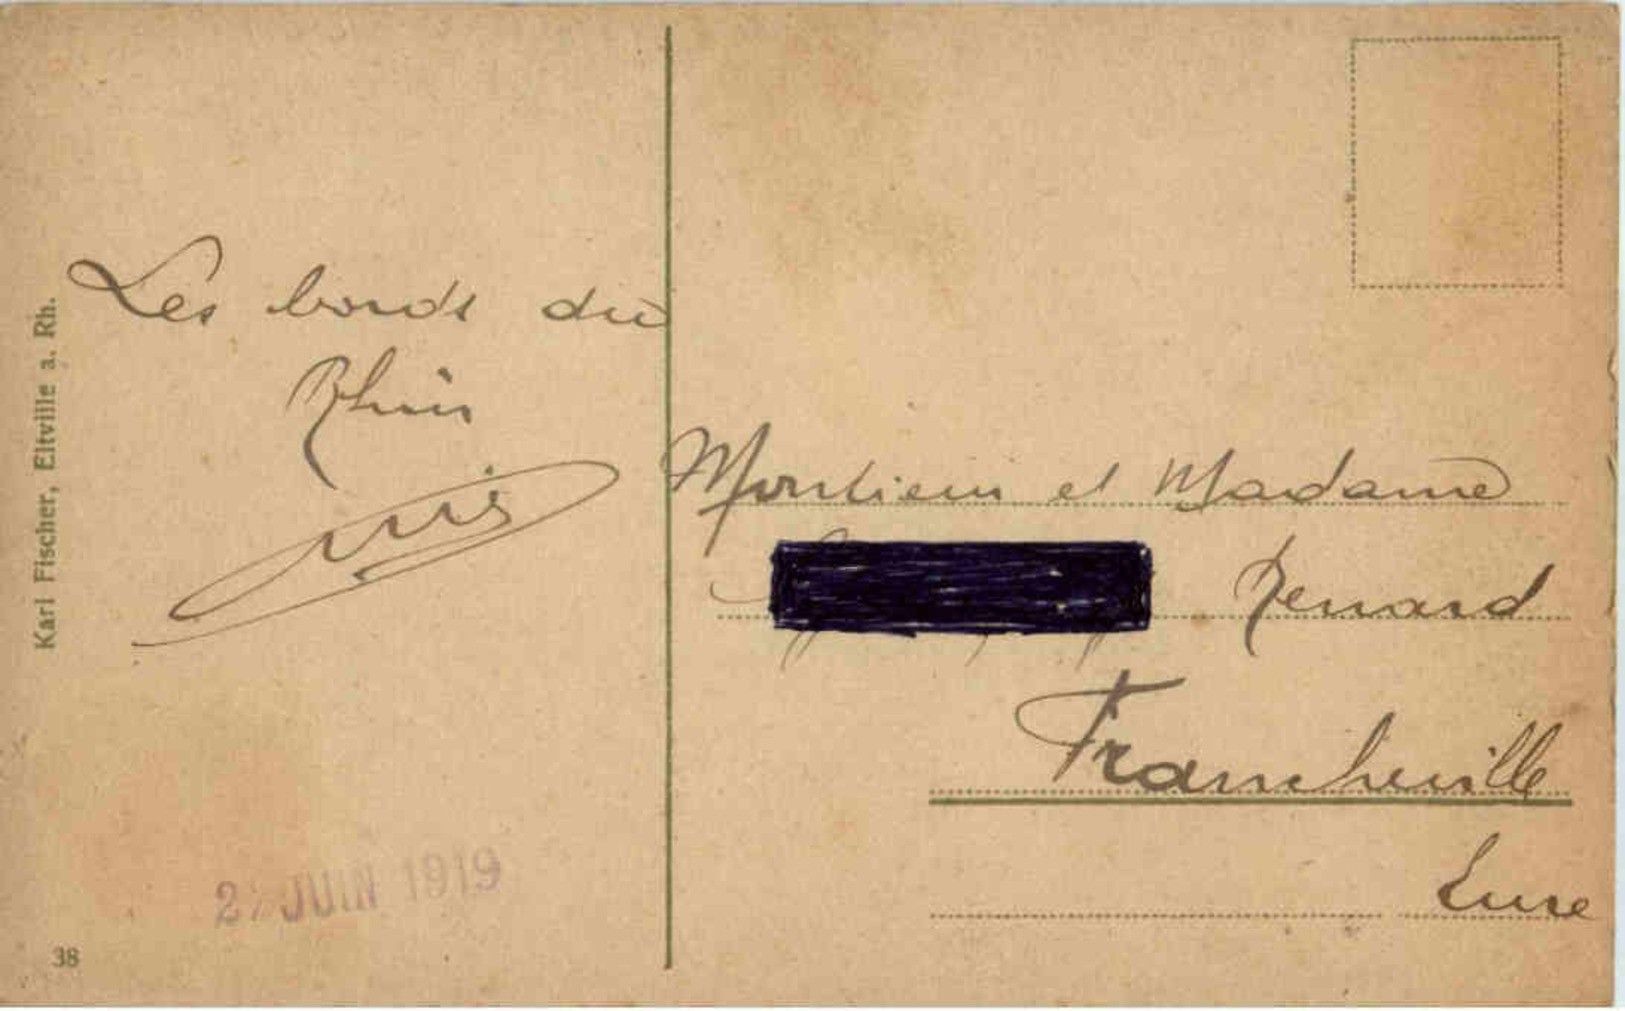 Les bords du
Rhin
Monsieur et Madame
Renard
Francheville
Eure
Karl Fischer, Eltville a. Rh.
JUIN 1919
38